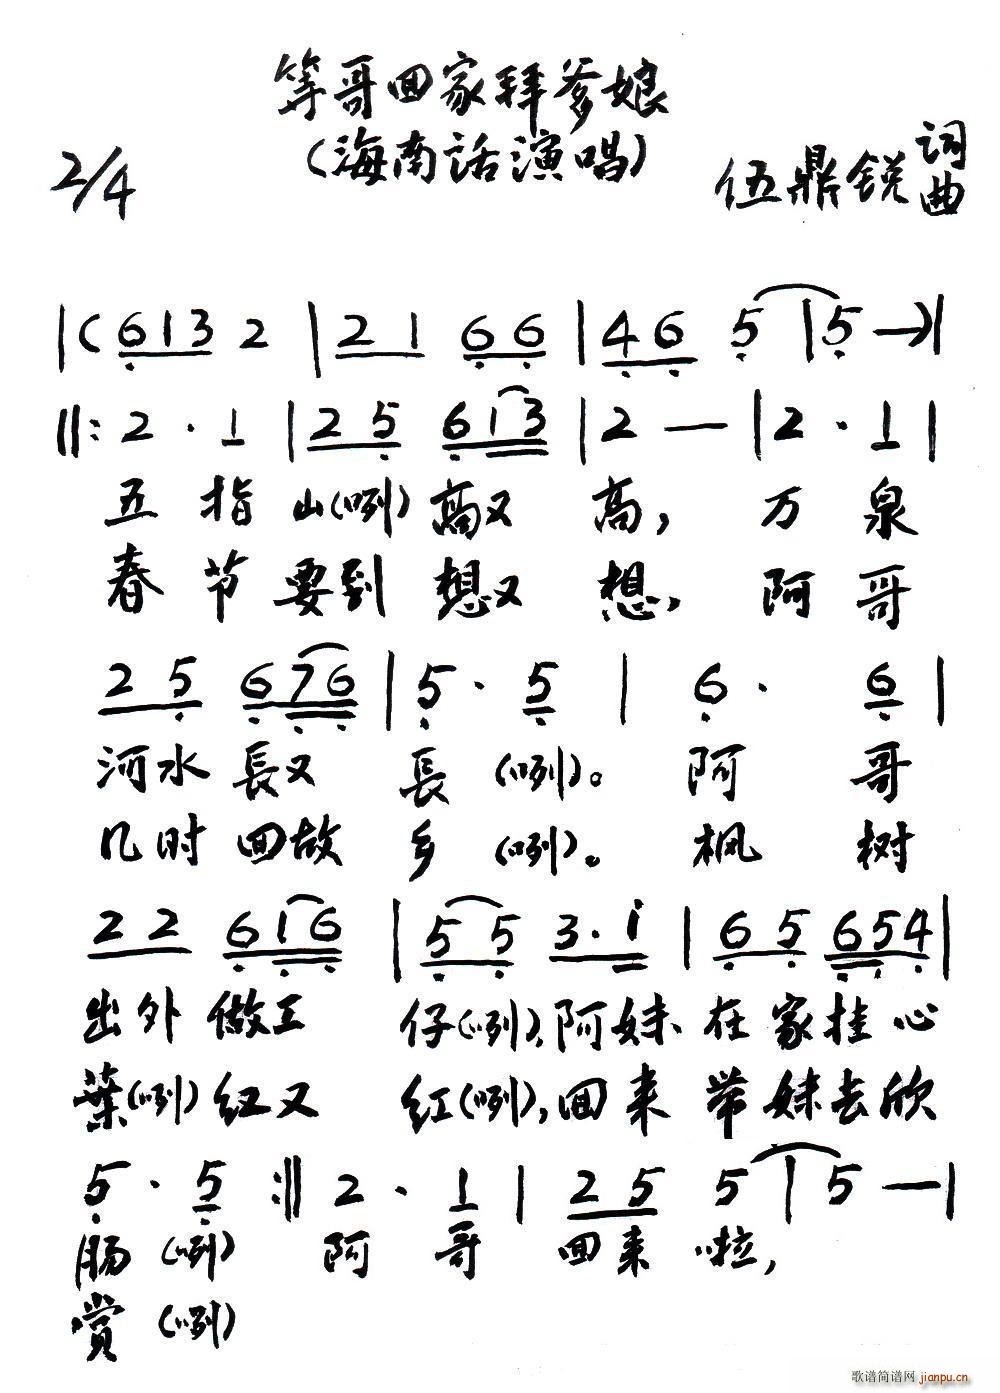 等哥回家拜爹娘
(海南话演唱)
2/4
伍鼎锐 词曲
|(613 2 | 21 66 | 46 5 | 5 —)|
‖: 2 · 1 | 25 613 | 2 — | 2 · 1 |
五指山(咧)高又 高, 万泉
春节要到想又 想, 阿哥
25 676 | 5 · 5 | 6 · 6 |
河水長又 長(咧)。 阿哥
几时回故 乡(咧)。 枫树
22 616 | 55 3·i | 65 654 |
出外做工 仔(咧),阿妹在家挂心
葉(咧)红又 红(咧),回来带妹去欣
5 · 5 :‖ 2 · 1 | 25 5 | 5 — |
肠(咧) 阿哥 回来啦,
赏(咧)
歌谱简谱网 jianpu.cn